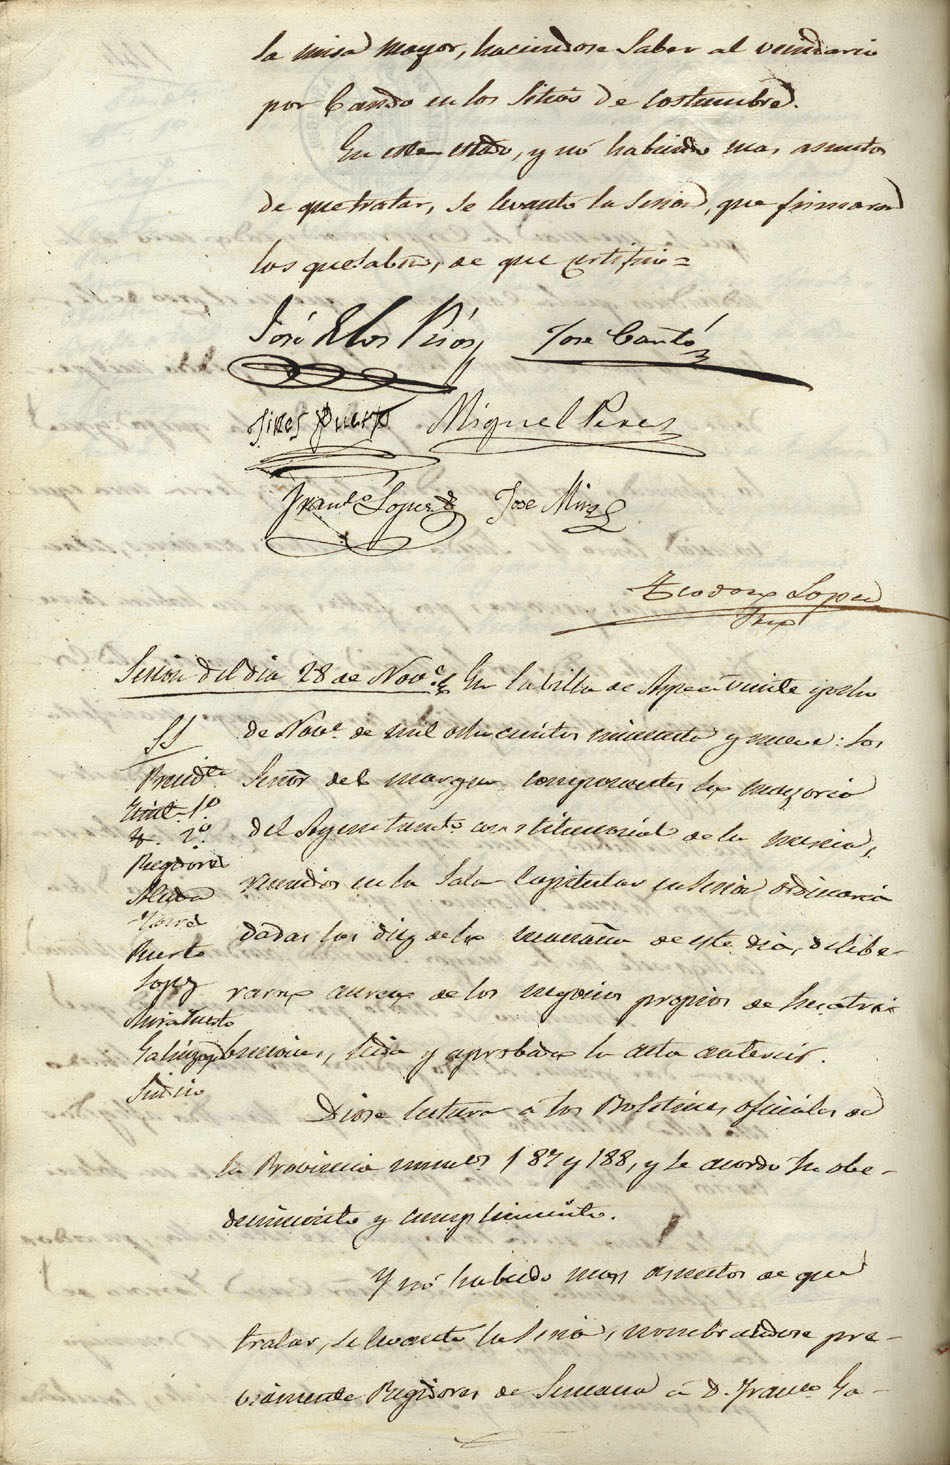 la misa mayor, haciendose saber al vecindario
por bando en los sitios de costumbre.
En este estado, y nó habiendo mas asuntos
de que tratar, se levantó la sesion, que firmaron
los que saben, de que certifico=
José de los Rios José Cantó
Gines Puerto Miguel Peres
Fran.co Lopez José Mira
Teodoro Lopez
Srio
Sesion del dia 28 de Nov.e
En la villa de Aspe á veinte y ocho
de Nov.e de mil ochocientos cincuenta y nueve: los
Señor del margen componentes la mayoria
del Ayuntamto constitucional de la misma,
reunidos en la Sala Capitular en sesion ordinaria
dadas las diez de la mañana de este dia, delibe-
raron acerca de los negocios propios de sus atri
buciones, leida y aprobada la acta anterior.
SS
Presid.te
Tente 1.o
Id. 2.o
Regidores
Puerto
Lopez
Mira
Galinzoga
Sindico
Diose lectura á los Boletines oficiales de
la Provincia numeros 187 y 188, y se acordo su obe-
decimiento y cumplimiento.
Y nó habiendo mas asuntos de que
tratar, se levantó la sesion, nombrandose pre-
viamente Regidores de Semana á D. Franco Ga-